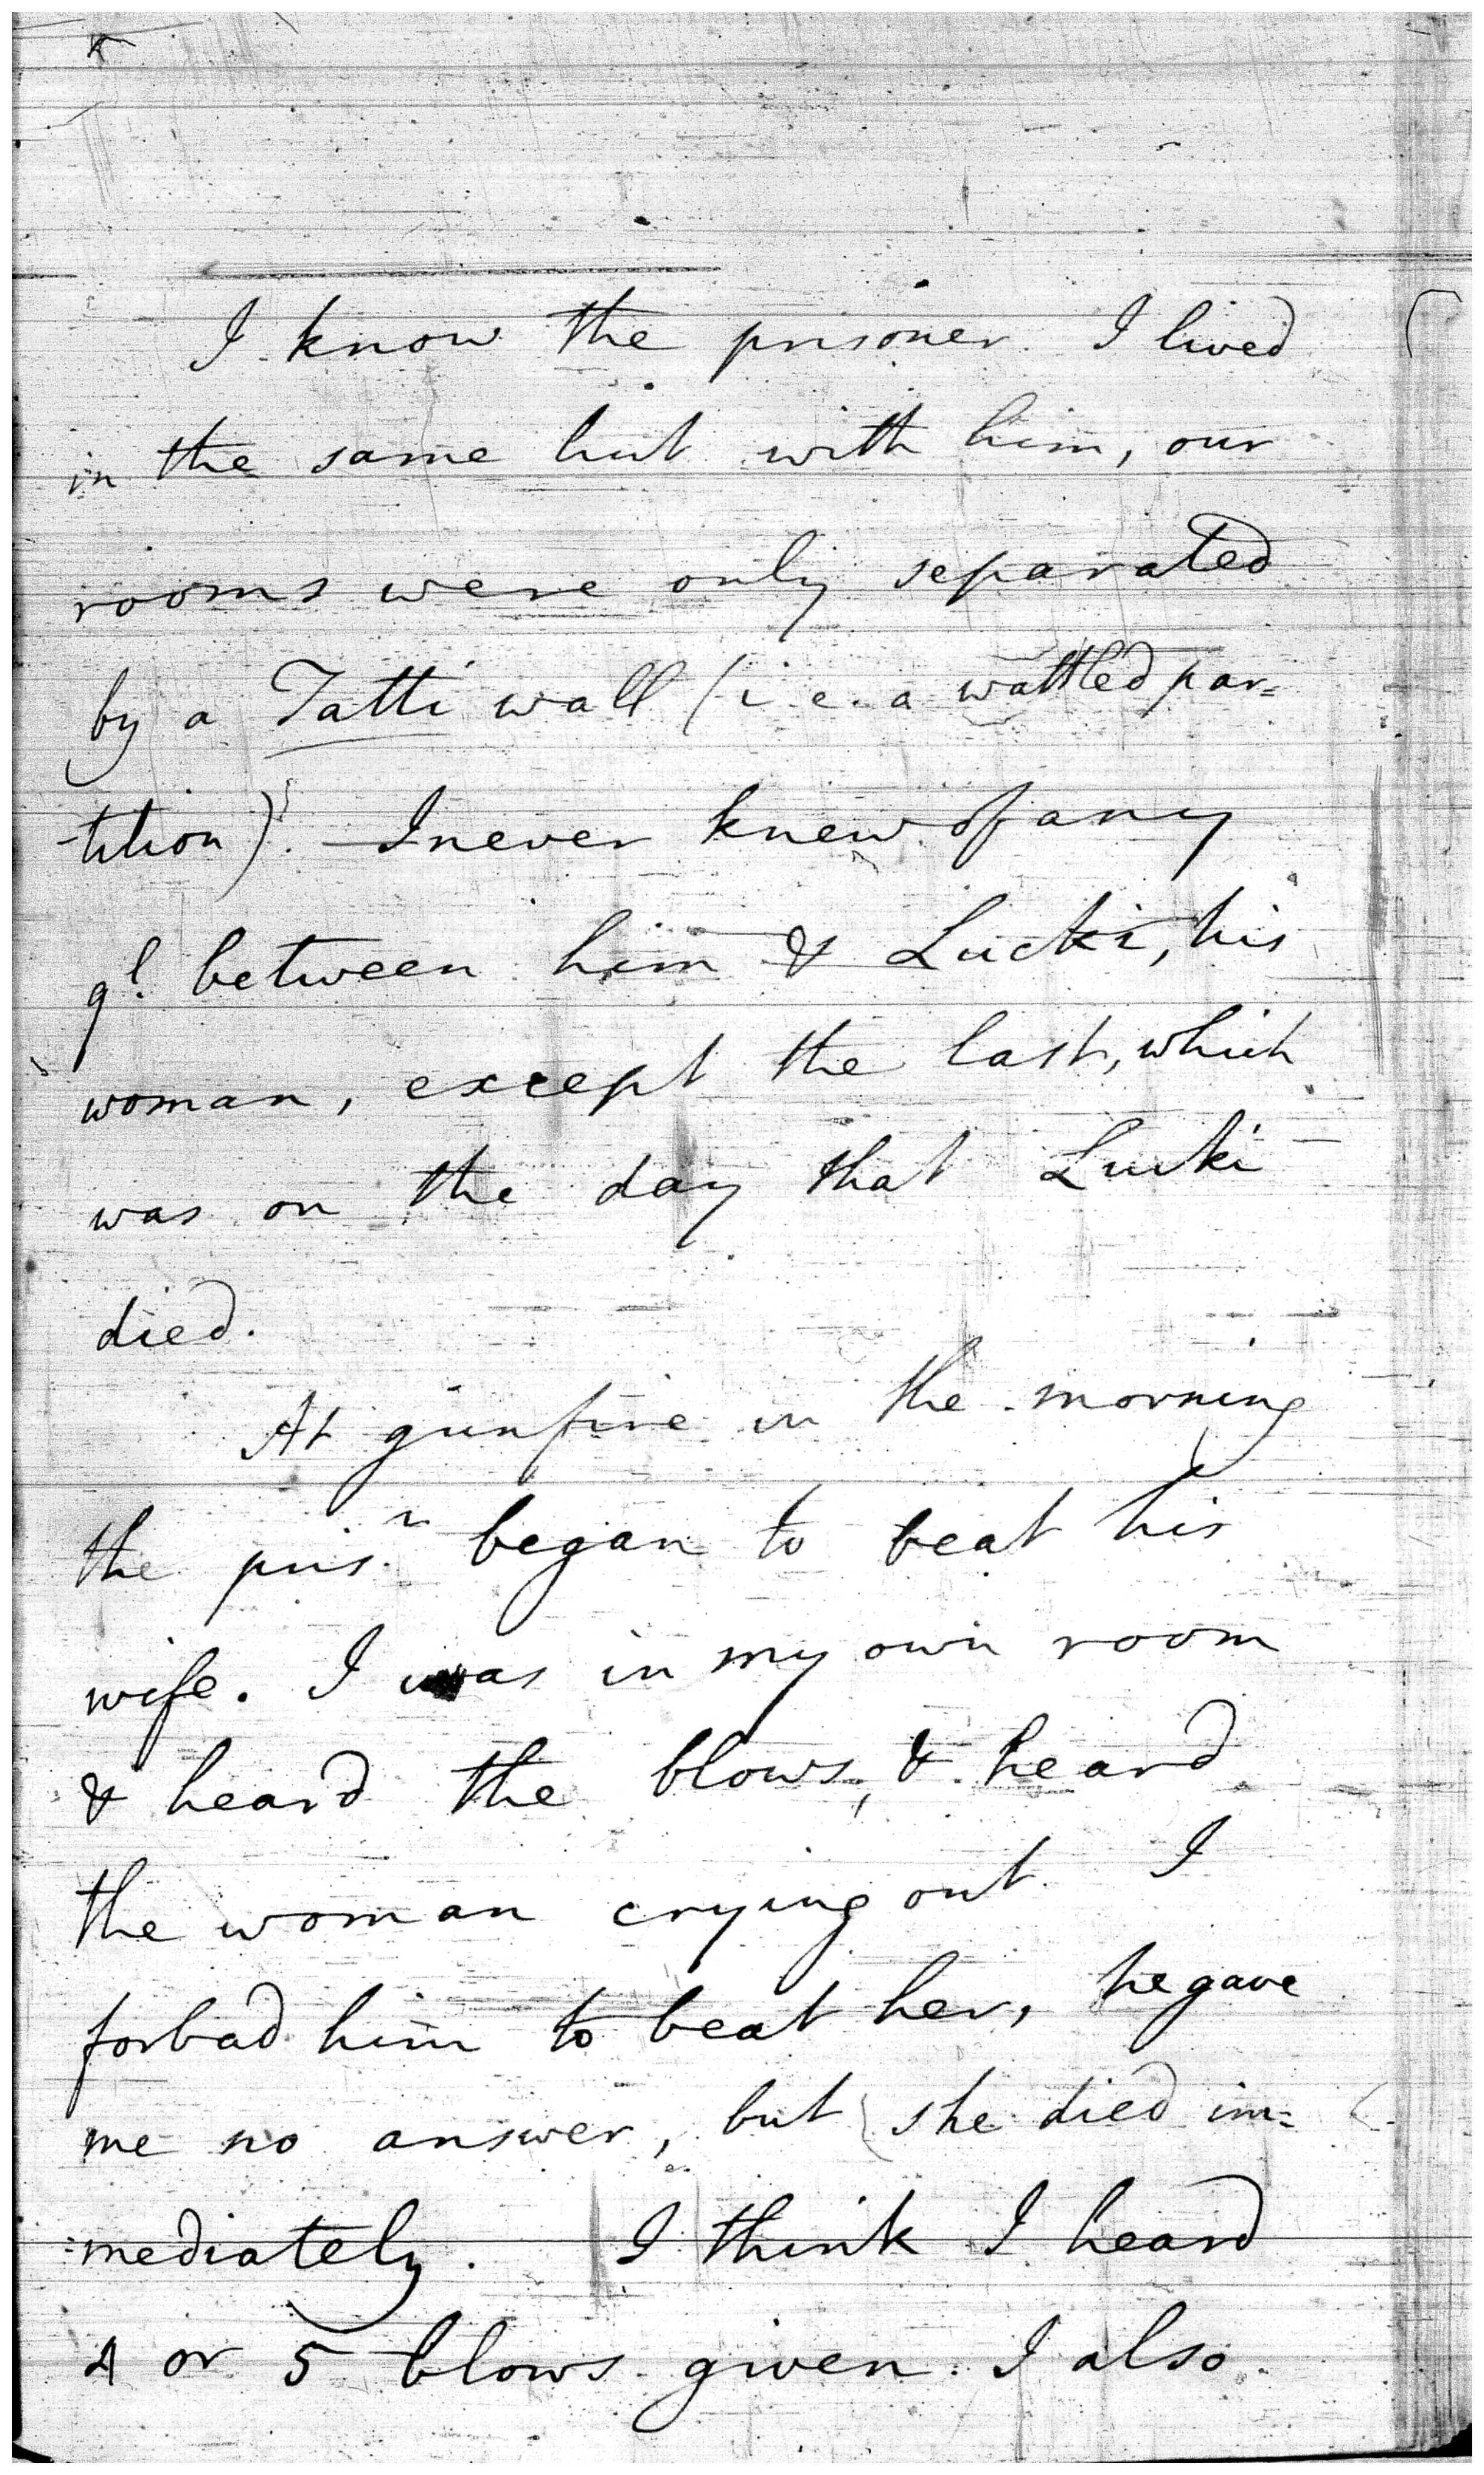 I know the prisoner. I lived
in the same hut with him, our
rooms were only separated
by a Tatti wall (i.e. a wattled par=
-tition). I never knew of any
ql. between him & Lucki, his
woman, except the last, which
was on the day that Lucki
died.
At gunfire in the morning
the prisr. began to beat his
wife. I was in my own room
& heard the blows, & heard
the woman crying out. I
forbad him to beat her, he gave
me no answer, but (she died im=
=mediately. I think I heard
4 or 5 blows given. I also